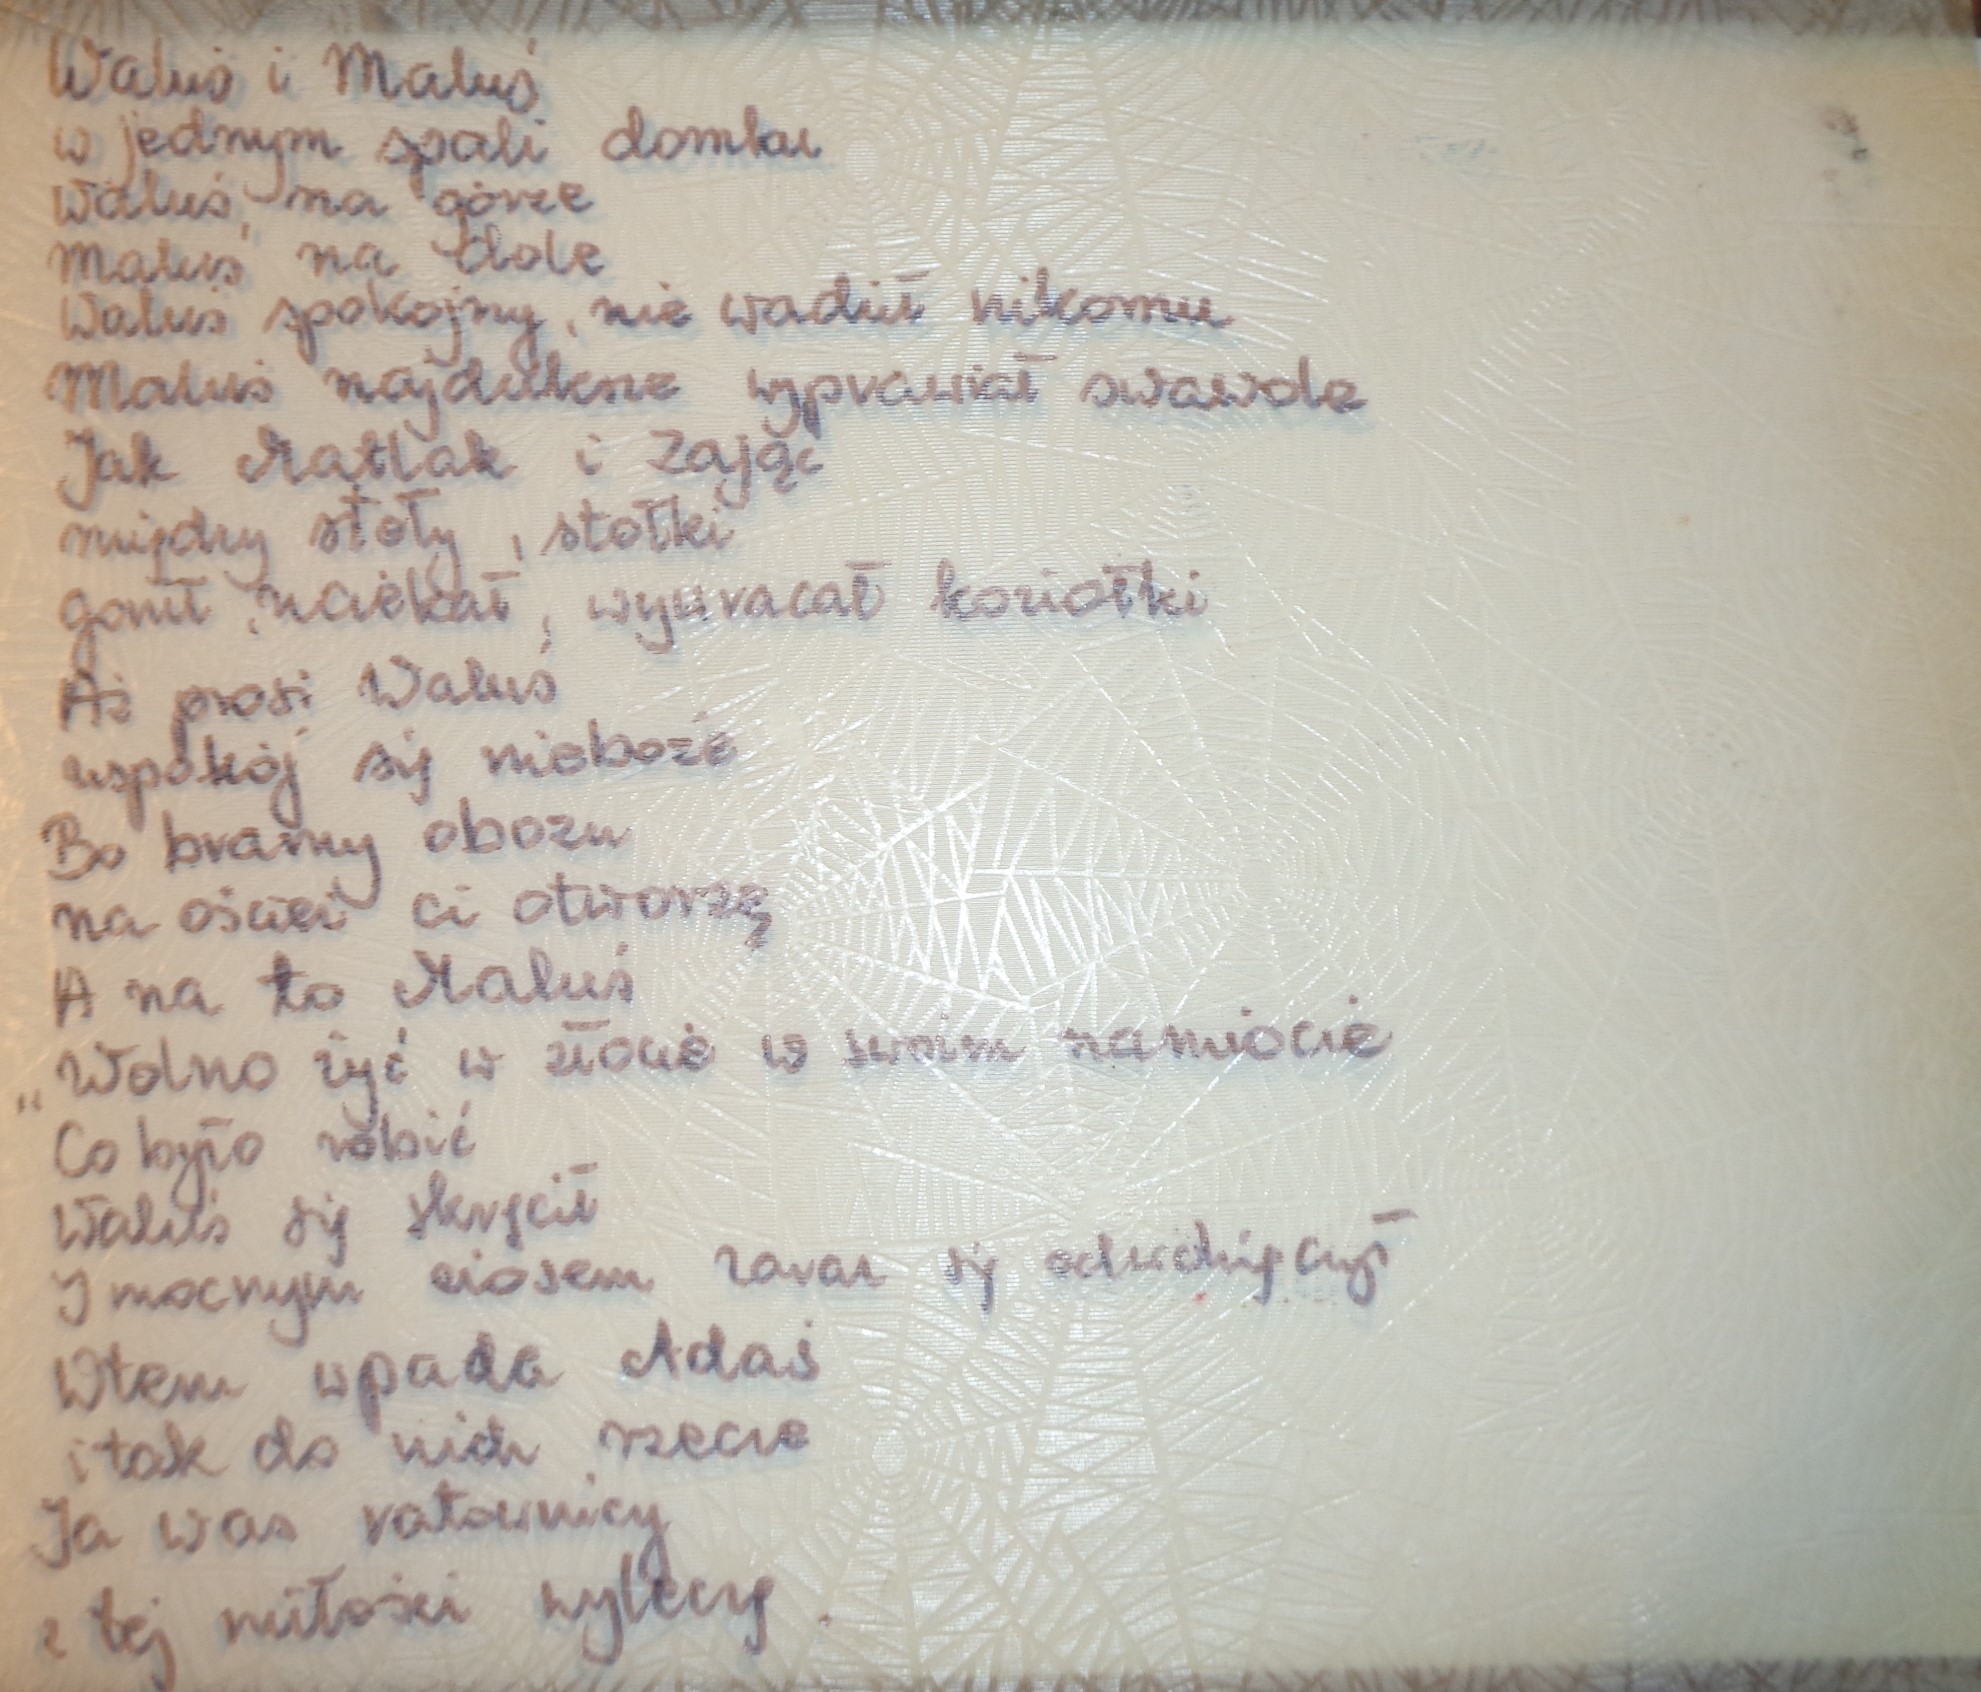 Waluś i Maluś
w jednym spali domku
Waluś, na górze
Maluś na dole
Waluś spokojny, nie wadził nikomu
Maluś najdziksze wyprawiał swawole
Jak Matlak i Zając
między stoły, stołki
gonił, uciekał, wywracał koziołki
Aż prosi Waluś
uspokój się nieboże
Bo bramy obozu
na oścież ci otworzę
A na to Maluś
„Wolno żyć w złocie w swoim namiocie
Co było robić
Waluś się skręcił
I mocnym ciosem zaraz się odwdzięczył
Wtem wpada Adaś
i tak do nich rzecze
Ja was ratownicy
z tej miłości wyleczę.